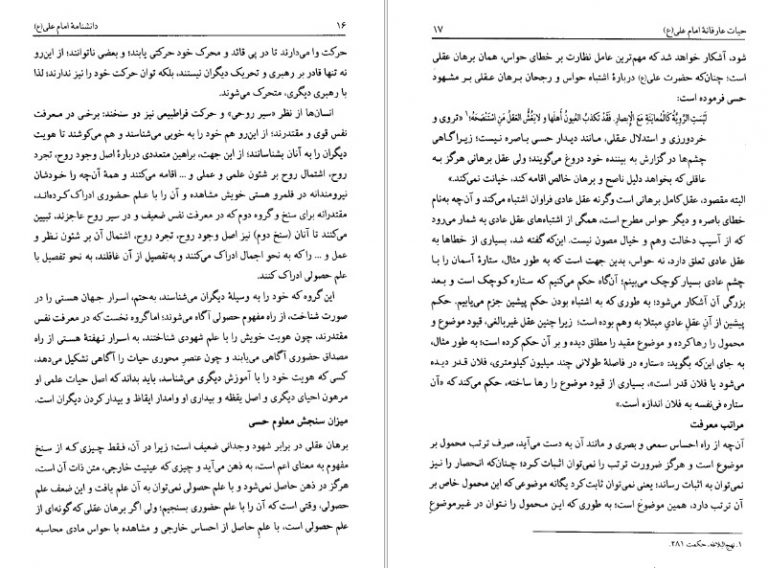 ۱۶ دانشنامهٔ امام علی(ع)
حرکت وا می‌دارند تا در پی قائد و محرک خود حرکتی یابند؛ و بعضی ناتوانند؛ از این‌رو
نه تنها قادر بر رهبری و تحریک دیگران نیستند، بلکه توان حرکت خود را نیز ندارند؛ لذا
با رهبری دیگری، متحرک می‌شوند.
انسان‌ها از نظر «سیر روحی» و حرکت فراطبیعی نیز دو سنخند: برخی در معرفت
نفس قوی و مقتدرند؛ از این‌رو هم خود را به خوبی می‌شناسند و هم می‌کوشند تا هویت
دیگران را به آنان بشناسانند؛ از این جهت، براهین متعددی دربارهٔ اصل وجود روح، تجرد
روح، اشتمال روح بر شئون علمی و عملی و ... اقامه می‌کنند و همهٔ آن‌چه را خودشان
نیرومندانه در قلمرو هستی خویش مشاهده و آن را با علم حضوری ادراک کرده‌اند،
مقتدرانه برای سنخ و گروه دوم که در معرفت نفس ضعیف و در سیر روح عاجزند، تبیین
می‌کنند تا آنان (سنخ دوم) نیز اصل وجود روح، تجرد روح، اشتمال آن بر شئون نظر و
عمل و ... را که به نحو اجمال ادراک می‌کنند و به‌تفصیل از آن غافلند، به نحو تفصیل با
علم حصولی ادراک کنند.
این گروه که خود را به وسیلهٔ دیگران می‌شناسند، به‌حتم، اسرار جهان هستی را در
صورت شناخت، از راه مفهوم حصولی آگاه می‌شوند؛ اما گروه نخست که در معرفت نفس
مقتدرند، چون هویت خویش را با علم شهودی شناختند، به اسرار نهفتهٔ هستی از راه
مصداق حضوری آگاهی می‌یابند و چون عنصر محوری حیات را آگاهی تشکیل می‌دهد،
کسی که هویت خود را با آموزش دیگری می‌شناسد، باید بداند که اصل حیات علمی او
مرهون احیای دیگری و اصل یقظه و بیداری او وامدار ایقاظ و بیدار کردن دیگران است.
میزان سنجش معلوم حسی
برهان عقلی در برابر شهود وجدانی ضعیف است؛ زیرا در آن، فقط چیزی که از سنخ
مفهوم به معنای اعم است، به ذهن می‌آید و چیزی که عینیت خارجی، متن ذات آن است،
هرگز در ذهن حاصل نمی‌شود و با علم حصولی نمی‌توان به آن علم یافت و این ضعف علم
حصولی، وقتی است که آن را با علم حضوری بسنجیم؛ ولی اگر برهان عقلی که گونه‌ای از
علم حصولی است، با علمِ حاصل از احساس خارجی و مشاهده با حواس مادی محاسبه
حیات عارفانهٔ امام علی(ع) ۱۷
شود، آشکار خواهد شد که مهم‌ترین عامل نظارت بر خطای حواس، همان برهان عقلی
است؛ چنان‌که حضرت علی(ع) دربارهٔ اشتباه حواس و رجحان برهان عقلی بر مشهود
حسی فرموده است:
لَیْسَتِ الرَّوِیَّةُ کَالْمُعایَنَةِ مَعَ الْإبصارِ. فَقَد تَکذبُ العُیونُ أهلَها و لا یَغُشُّ العَقلُ مَنِ استَنصَحَهُ؛۱ «تروی و
خردورزی و استدلال عقلی، مانند دیدار حسی باصره نیست؛ زیرا گاهی
چشم‌ها در گزارش به بیننده خود دروغ می‌گویند؛ ولی عقل برهانی هرگز به
عاقلی که بخواهد دلیل ناصح و برهان خالص اقامه کند، خیانت نمی‌کند.»
البته مقصود، عقل کامل برهانی است وگرنه عقل عادی فراوان اشتباه می‌کند و آن‌چه به‌نام
خطای باصره و دیگر حواس مطرح است، همگی از اشتباه‌های عقل عادی به شمار می‌رود
که از آسیب دخالت وهم و خیال مصون نیست. این‌که گفته شد، بسیاری از خطاها به
عقل عادی تعلق دارد، نه حواس، بدین جهت است که به طور مثال، ستارهٔ آسمان را با
چشم عادی بسیار کوچک می‌بینم؛ آن‌گاه حکم می‌کنیم که ستاره کوچک است و بعد
بزرگی آن آشکار می‌شود؛ به طوری که به اشتباه بودن حکم پیشین جزم می‌یابیم. حکم
پیشین از آنِ عقلِ عادیِ مبتلا به وهم بوده است؛ زیرا چنین عقل غیربالغی، قیود موضوع و
محمول را رها کرده و موضوع مقید را مطلق دیده و بر آن حکم کرده است؛ به طور مثال،
به جای این‌که بگوید: «ستاره در فاصلهٔ طولانی چند میلیون کیلومتری، فلان قدر دیده
می‌شود یا فلان قدر است»، بسیاری از قیود موضوع را رها ساخته، حکم می‌کند که «آن
ستاره فی‌نفسه به فلان اندازه است.»
مراتب معرفت
آن‌چه از راه احساس سمعی و بصری و مانند آن به دست می‌آید، صرف ترتب محمول بر
موضوع است و هرگز ضرورت ترتب را نمی‌توان اثبات کرد؛ چنان‌که انحصار را نیز
نمی‌توان به اثبات رساند؛ یعنی نمی‌توان ثابت کرد یگانه موضوعی که این محمول خاص بر
آن ترتب دارد، همین موضوع است؛ به طوری که این محمول را نتوان در غیرموضوع
۱. نهج‌البلاغه، حکمت ۲۸۱.